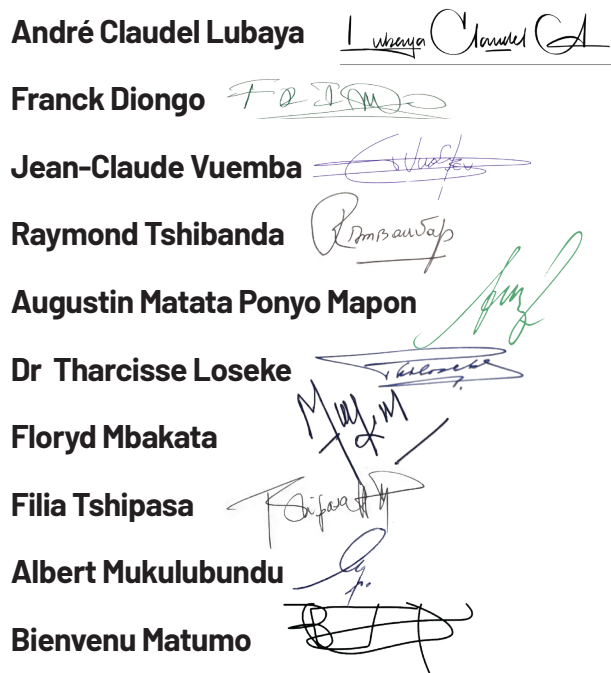 André Claudel Lubaya Lubaya Claudel
Franck Diongo
Jean-Claude Vuemba
Raymond Tshibanda
Augustin Matata Ponyo Mapon
Dr Tharcisse Loseke
Floryd Mbakata
Filia Tshipasa
Albert Mukulubundu
Bienvenu Matumo